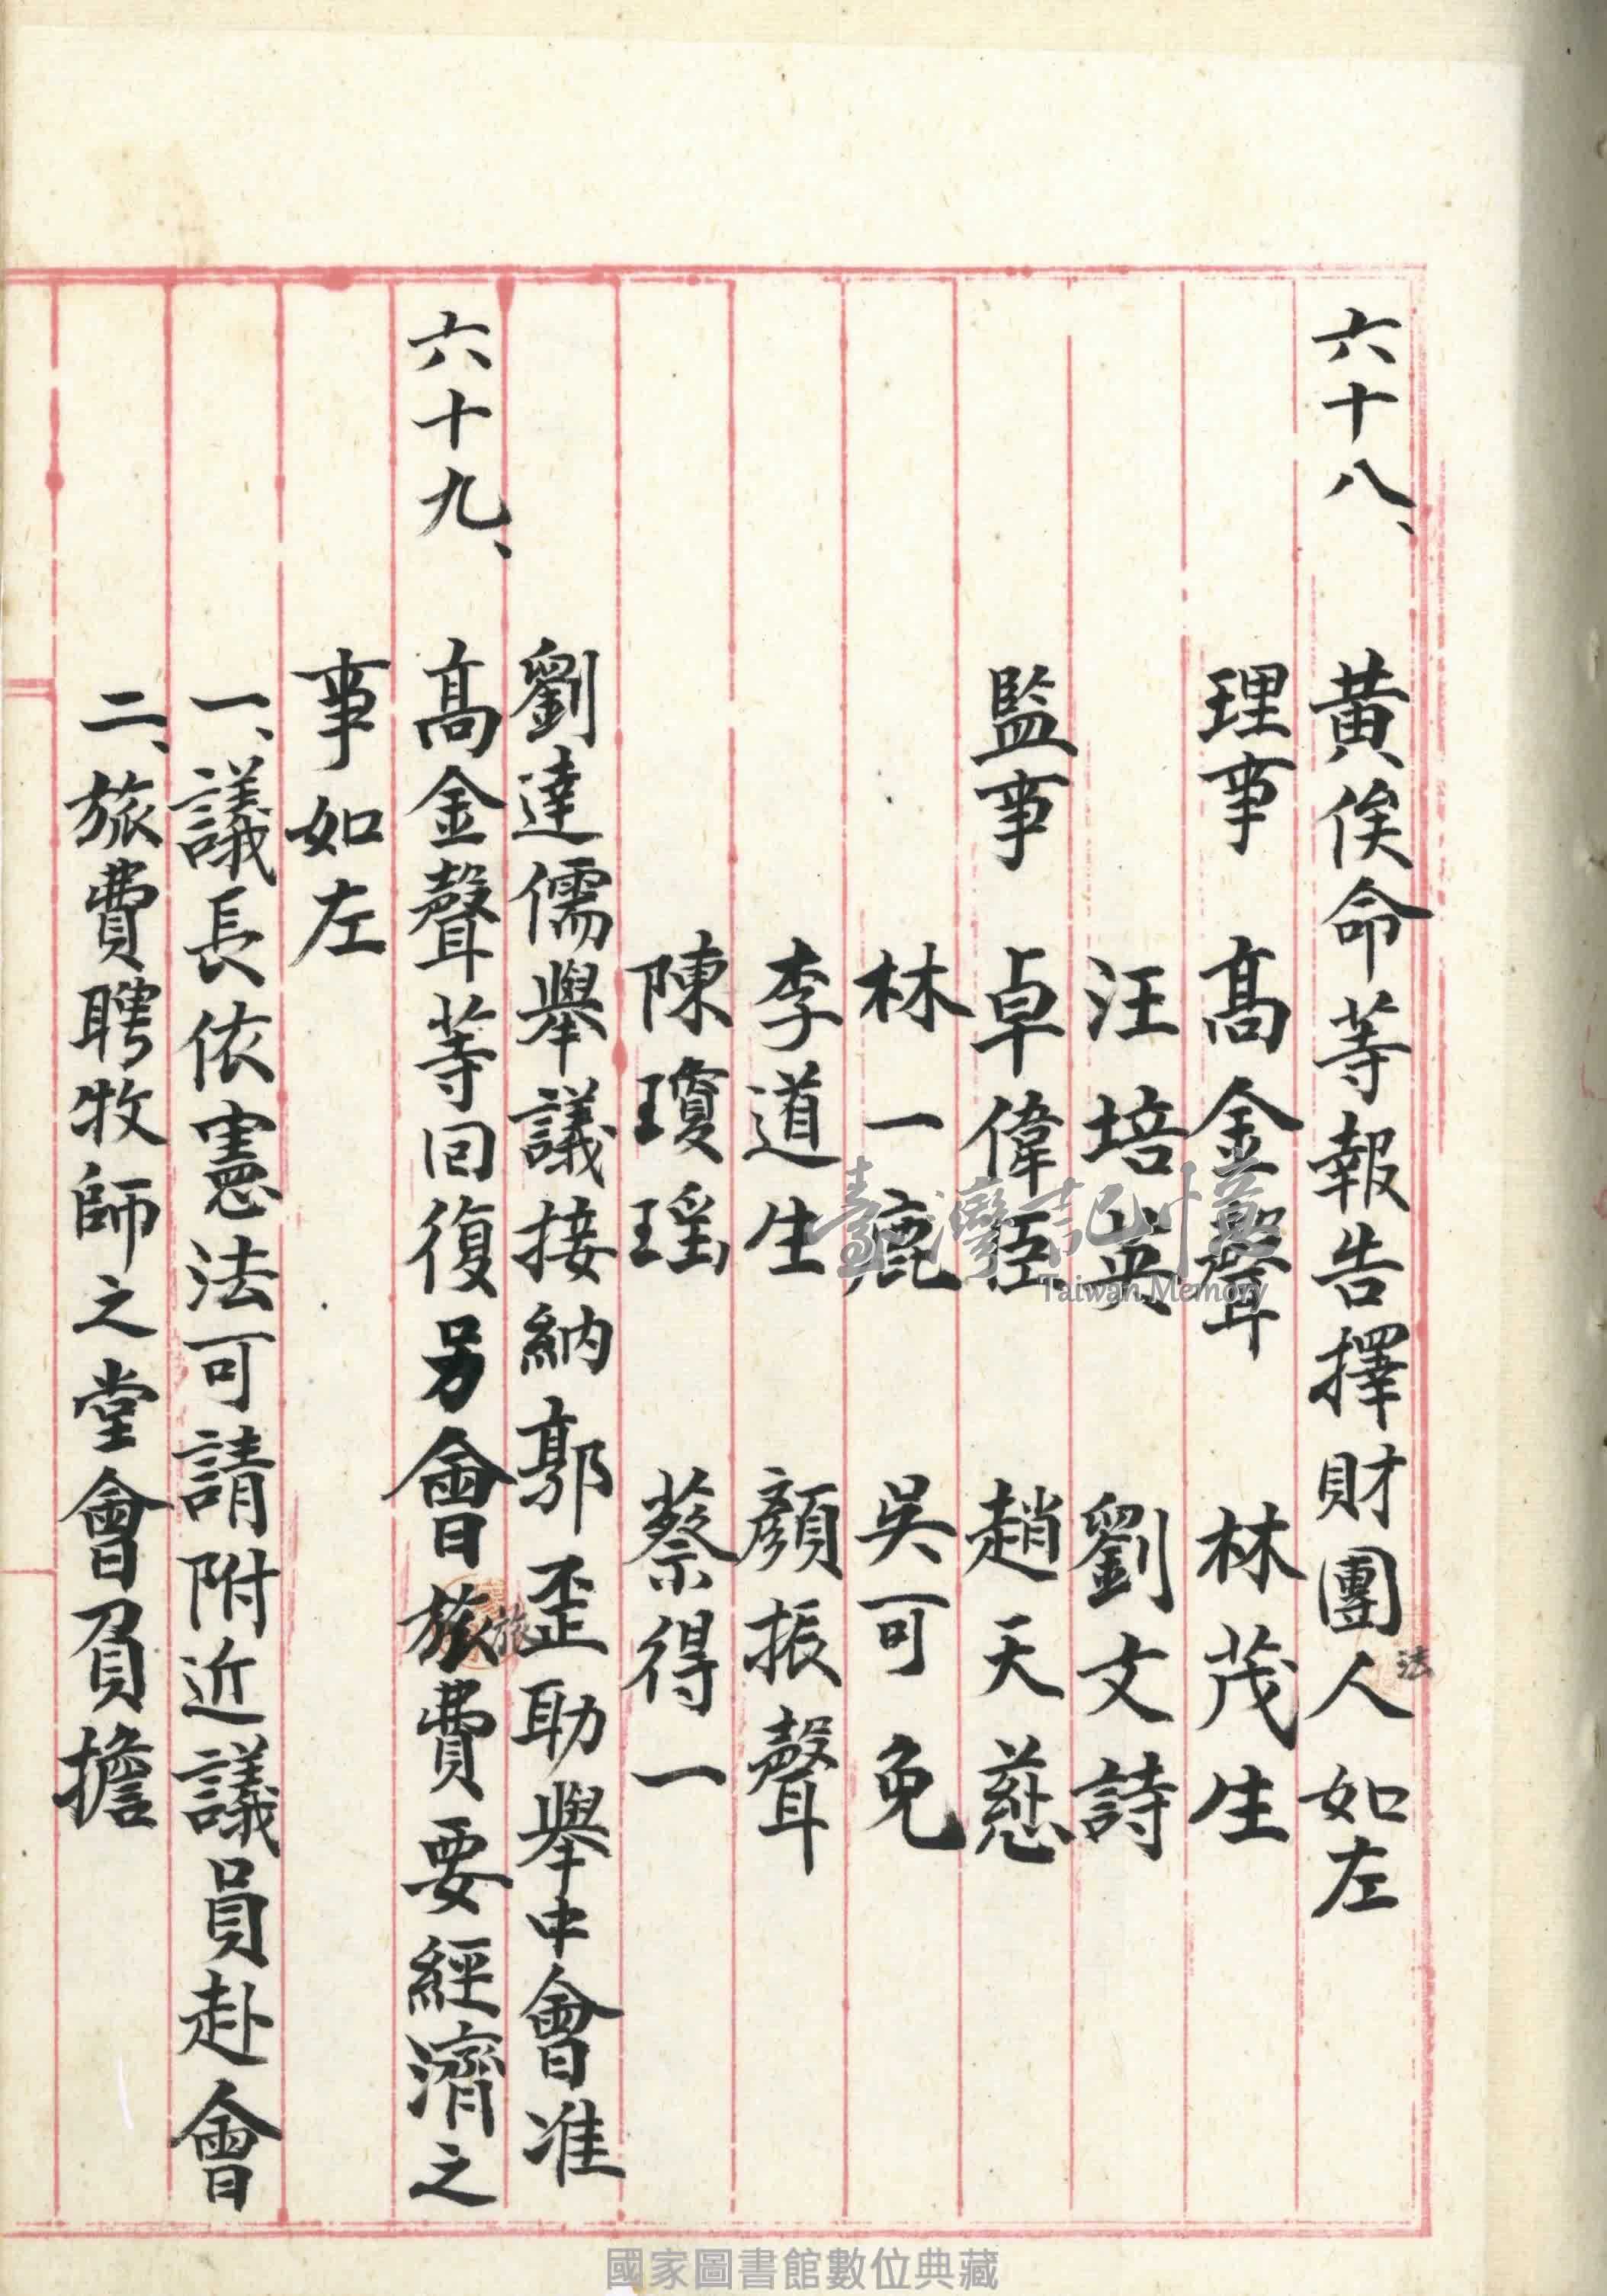 六十八、黃俟命等報告擇財團法人如左
理事 高金聲 林茂生
汪培英 劉文詩
監事 卓偉臣 趙天慈
林一 吳可免
李道生 顏振聲
陳瓊瑶 蔡得一
劉達儒舉議接納郭歪助舉中會准
六十九、高金聲等回復另會旅費要經濟之
旅
事如左
一、議長依憲法可請附近議員赴會
二、旅費聘牧師之堂會負擔
臺灣記憶
Taiwan Memory
國家圖書館數位典藏